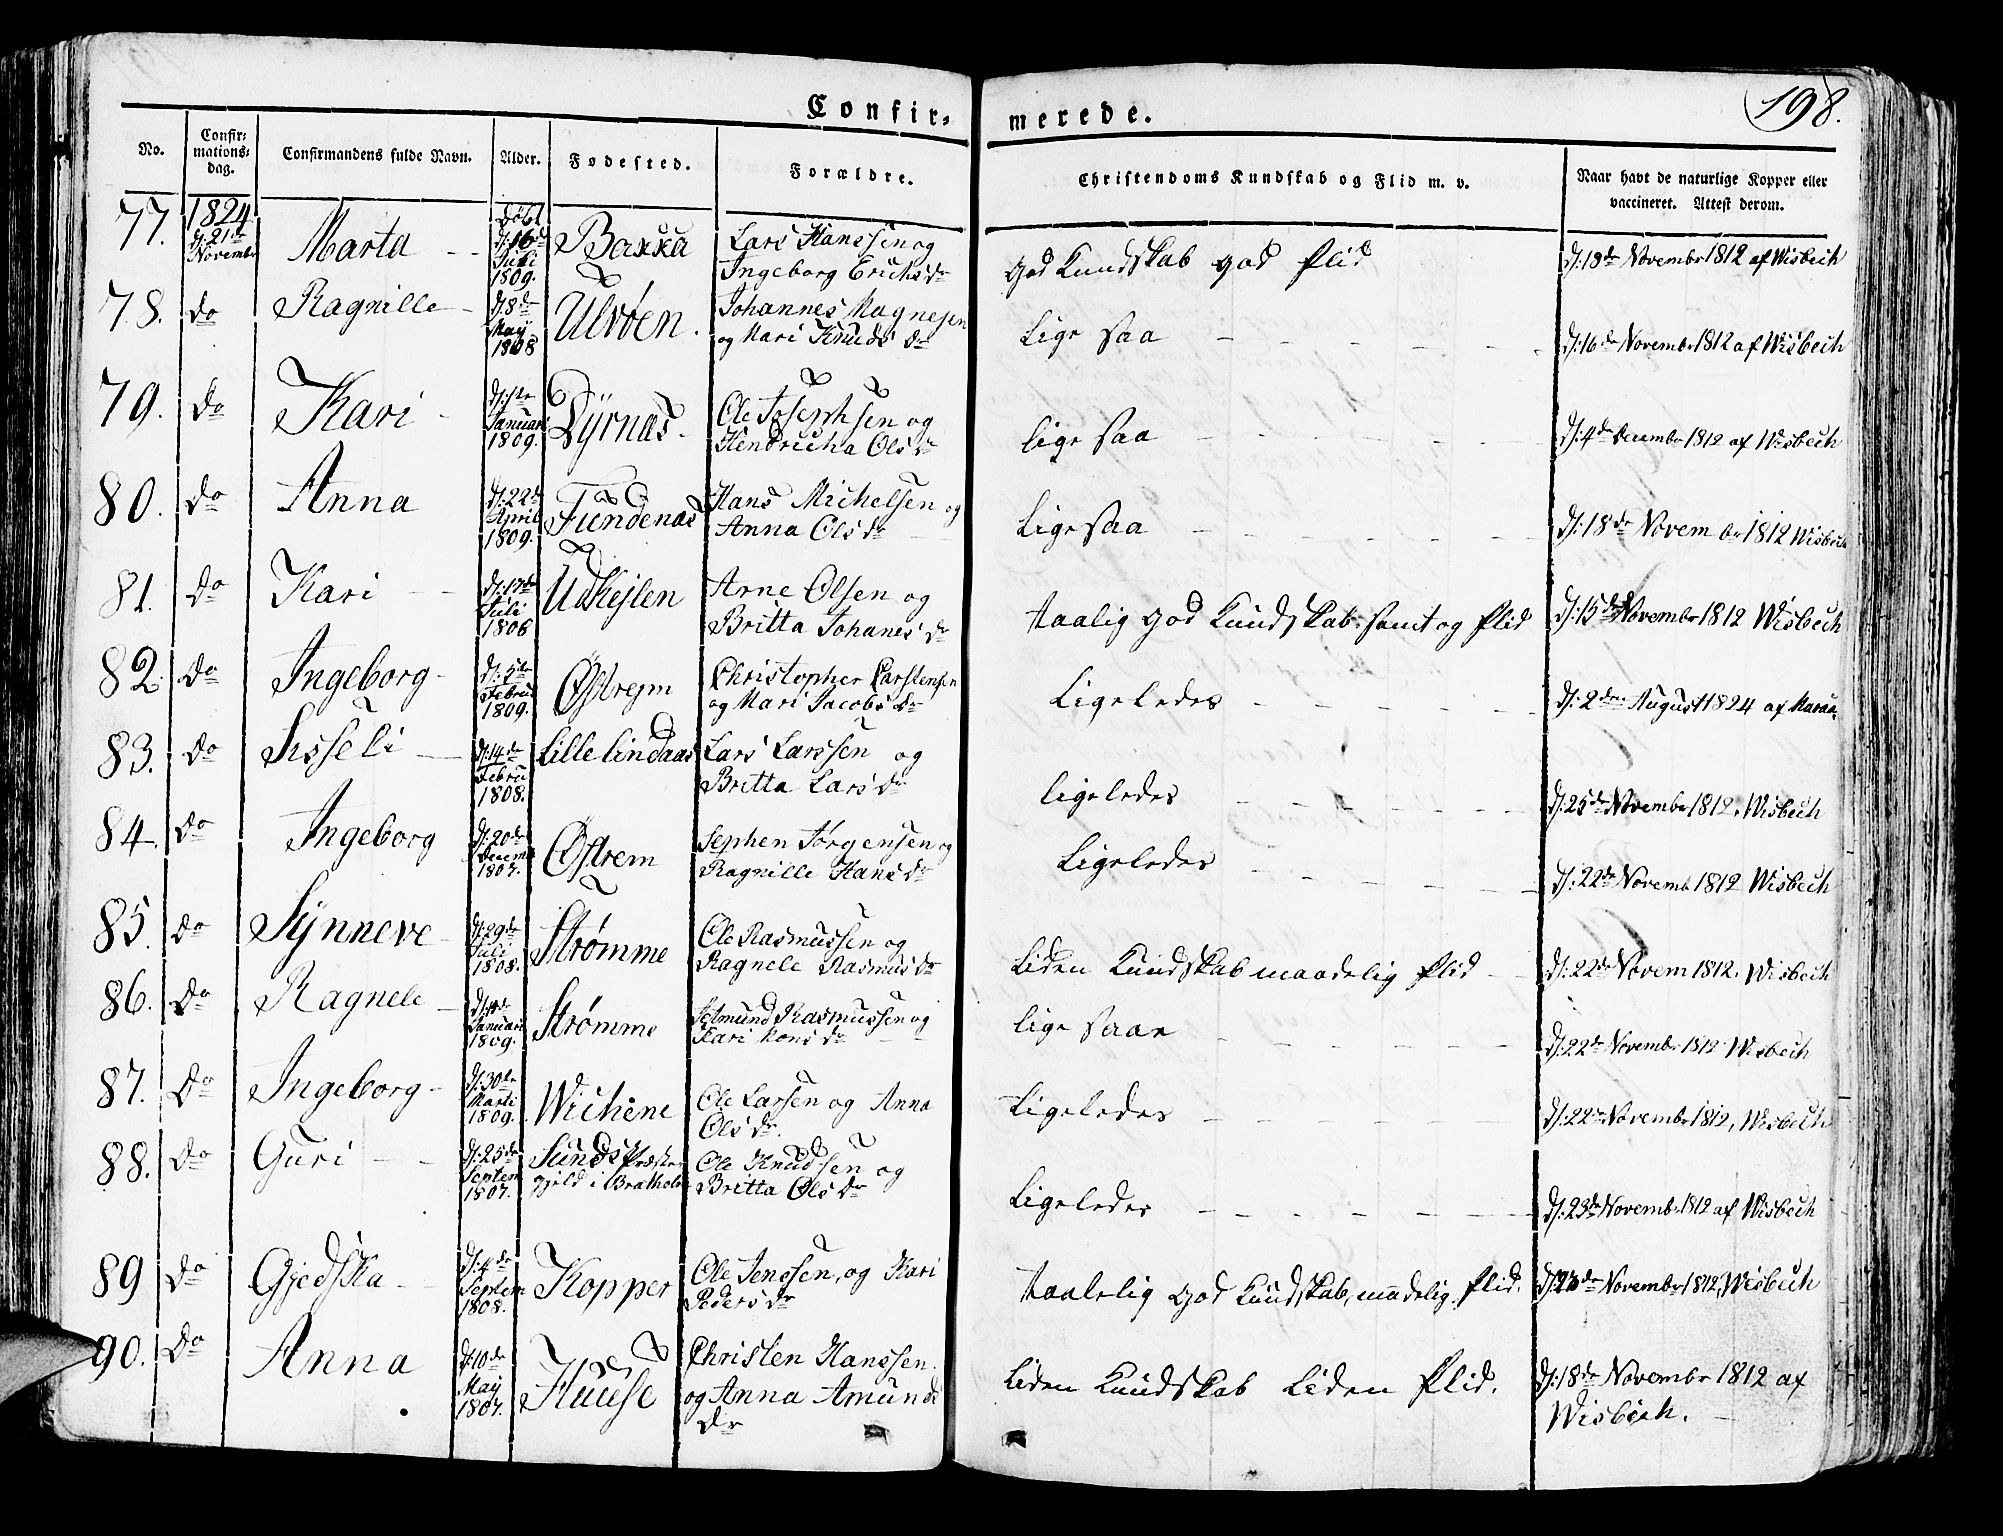 Confirmerede.
198.
No.
Confirmationsdag.
Confirmandens fulde Navn.
Alder.
Fødested.
Forældre.
Christendoms Kundskab og Flid m. v.
Naar havt de naturlige Kopper eller vaccineret. Attest derom.
77. 1824 d: 21de Novembr Marta Døbt d: 16de Juli 1809. Bakka Lars Hanssen og Ingeborg Erichsdr god Kundskab god Flid d: 18de Novembr 1812 af Wisbech
78. do Ragnille d: 8de May 1808 Ulvøen. Johannes Magnesen og Mari Knudsdr Lige saa d: 16de Novembr 1812 af Wisbech
79. do Kari d: 1te Januari 1809. Dyrnæs. Ole Josephsen og Hendricha Olsdr lige saa d: 4de Decembr 1812 af Wisbech
80. do Anna d: 22de April 1809. Tundenæs Hans Michelsen og Anna Olsdr Lige saa d: 18de Novembr 1812 Wisbech
81. do Kari d: 17de Juli 1806 Udkejlen Arne Olsen og Britta Johanesdr taalig god Kundskab samt og Flid d: 15de Novembr 1812 Wisbech
82. do Ingeborg d: 5te Febru 1809. Østrejm Christopher Carstensen og Mari Jacobsdr Ligeledes d: 2den August 1824 af
83. do Sisseli d: 14de Febru 1808. Lille lindaas Lars Larssen og Britta Larsdr ligeledes d: 25de Novembr 1812. Wisbech
84. do Ingeborg d: 20de Decem 1807. Østrem Sephen Jørgensen og Ragnille Hansdr Ligeledes d: 22de Novemb 1812 Wisbech
85. do Synneve d: 29de Juli 1808. Strømme Ole Rasmussen og Ragnele Rasmusdr Liden Kundskab maadelig Flid d: 22de Novem 1812. Wisbech
86. do Ragnele d: 4de Januari 1809. Strømme Rasmussen og Kari Monsdr lige saa d: 22de Novembr 1812 Wisbech
87. do Ingeborg d: 30de Marti 1809. Wichene Ole Larsen og Anna Olsdr. Ligeledes d: 22de Novembr 1812, Wisbech
88. do Guri d: 25de Septem 1807. Sunds Præstegjeld i Bratholm Ole Knudsen og Britta Olsdr Ligeledes d: 23de Novembr 1812 af Wisbech
89 do Gjedska d: 4de Septem 1808. Kopper Ole Jenssen, og Kari Pedersdr taalelig god Kundskab, maadelig Flid. d: 23de Novembr 1812, Wisbech
90. do Anna d: 10de May 1807. Huuse Christen Hanssen. og Anna Amunds dr Liden Kundskab Liden Flid. d: 18de Novembr 1812 af Wisbech.